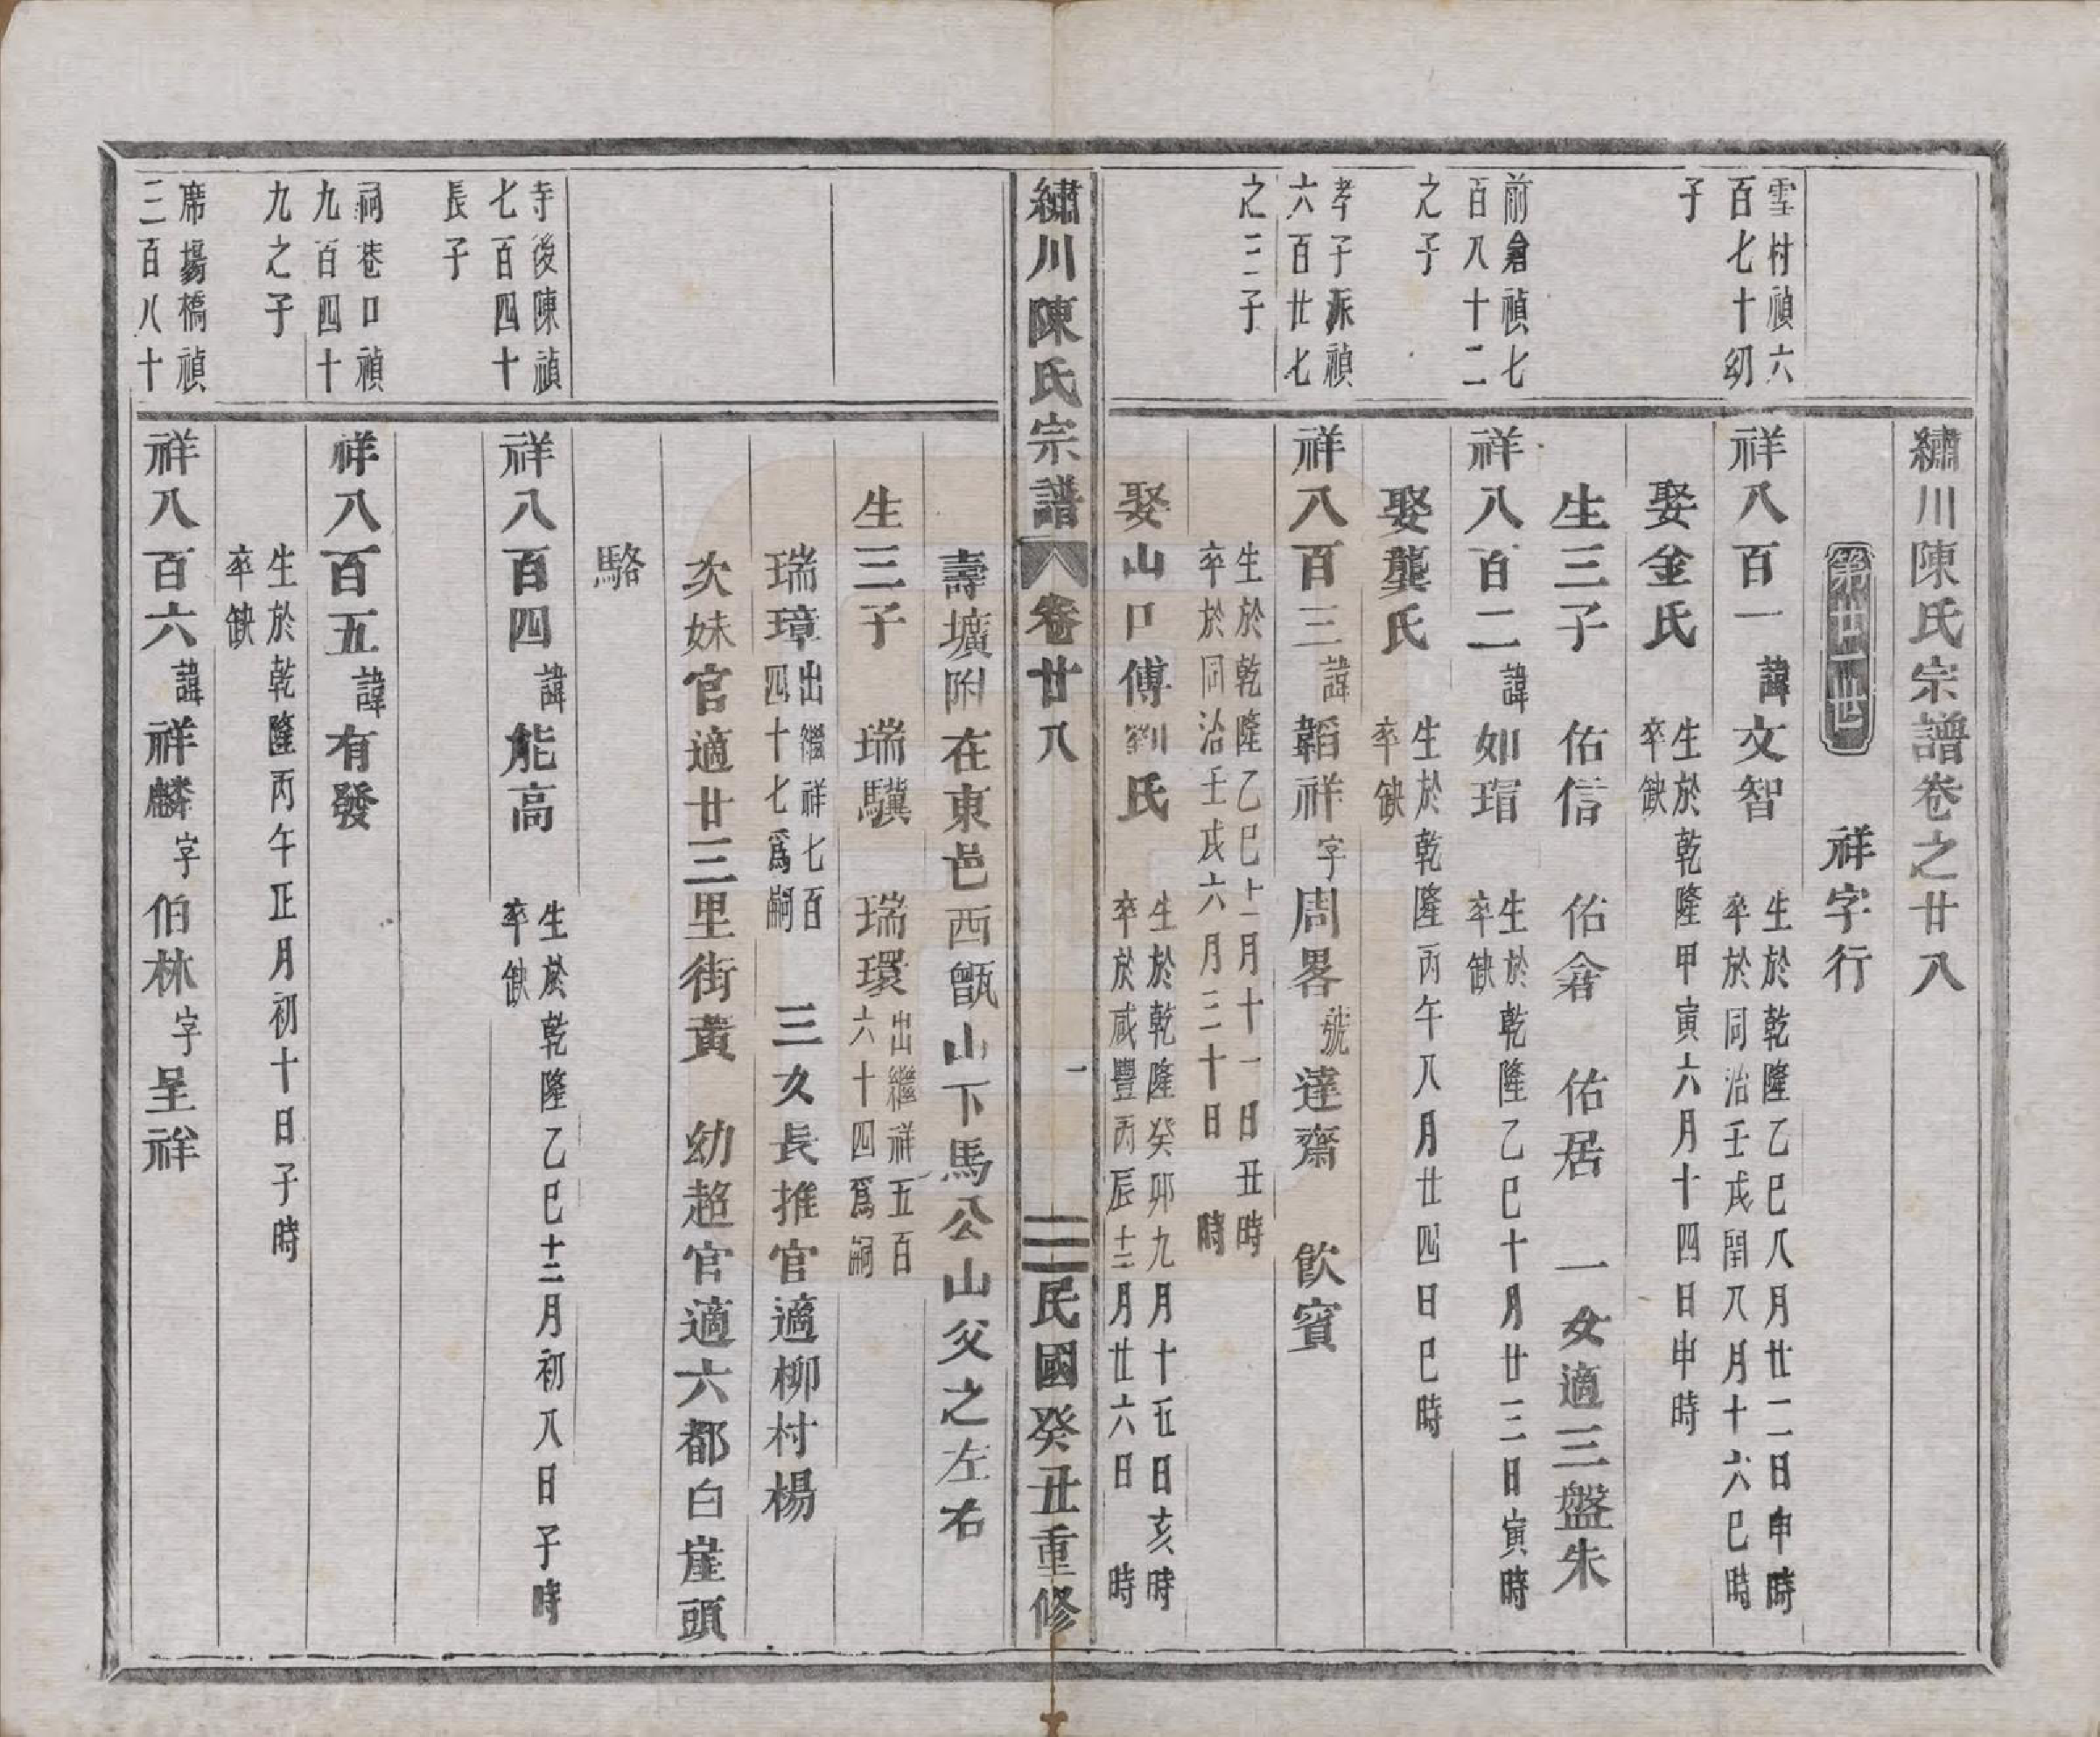 繡川陳氏宗譜卷之廿八
祥字行
雪村禎六
百七十幼
子
祥八百一諱文智
生於乾隆乙巳八月廿二日申時
卒於同治壬戌閏八月十六巳時
娶金氏
生於乾隆甲寅六月十四日申時
卒缺
生三子 佑信 佑畣 佑居 一女適三盤朱
前倉禎七
百八十二
之子
祥八百二諱如琩
生於乾隆乙巳十月廿三日寅時
卒缺
娶龔氏
生於乾隆丙午八月廿四日巳時
卒缺
孝子派禎
六百廿七
之三子
祥八百三諱韜祥字周畧號達齋 飲賓
生於乾隆乙巳十一月十一日丑時
卒於同治壬戌六月三十日 時
娶山口傅劉氏
生於乾隆癸卯九月十五日亥時
卒於咸豐丙辰十二月廿六日 時
繡川陳氏宗譜 卷廿八 一 民國癸丑重修
壽壙附在東邑西甑山下馬公山父之左右
生三子 瑞驥 瑞環
出繼祥五百
六十四爲嗣
瑞璋
出繼祥七百
四十七爲嗣
三女長推官適柳村楊
次妹官適廿三里街黃 幼超官適六都白崖頭
駱
寺後陳禎
七百四十
長子
祥八百四諱能高
生於乾隆乙巳十二月初八日子時
卒缺
祠巷口禎
九百四十
九之子
祥八百五諱有發
生於乾隆丙午正月初十日子時
卒缺
席場橋禎
三百八十
祥八百六諱祥麟字伯林字呈祥